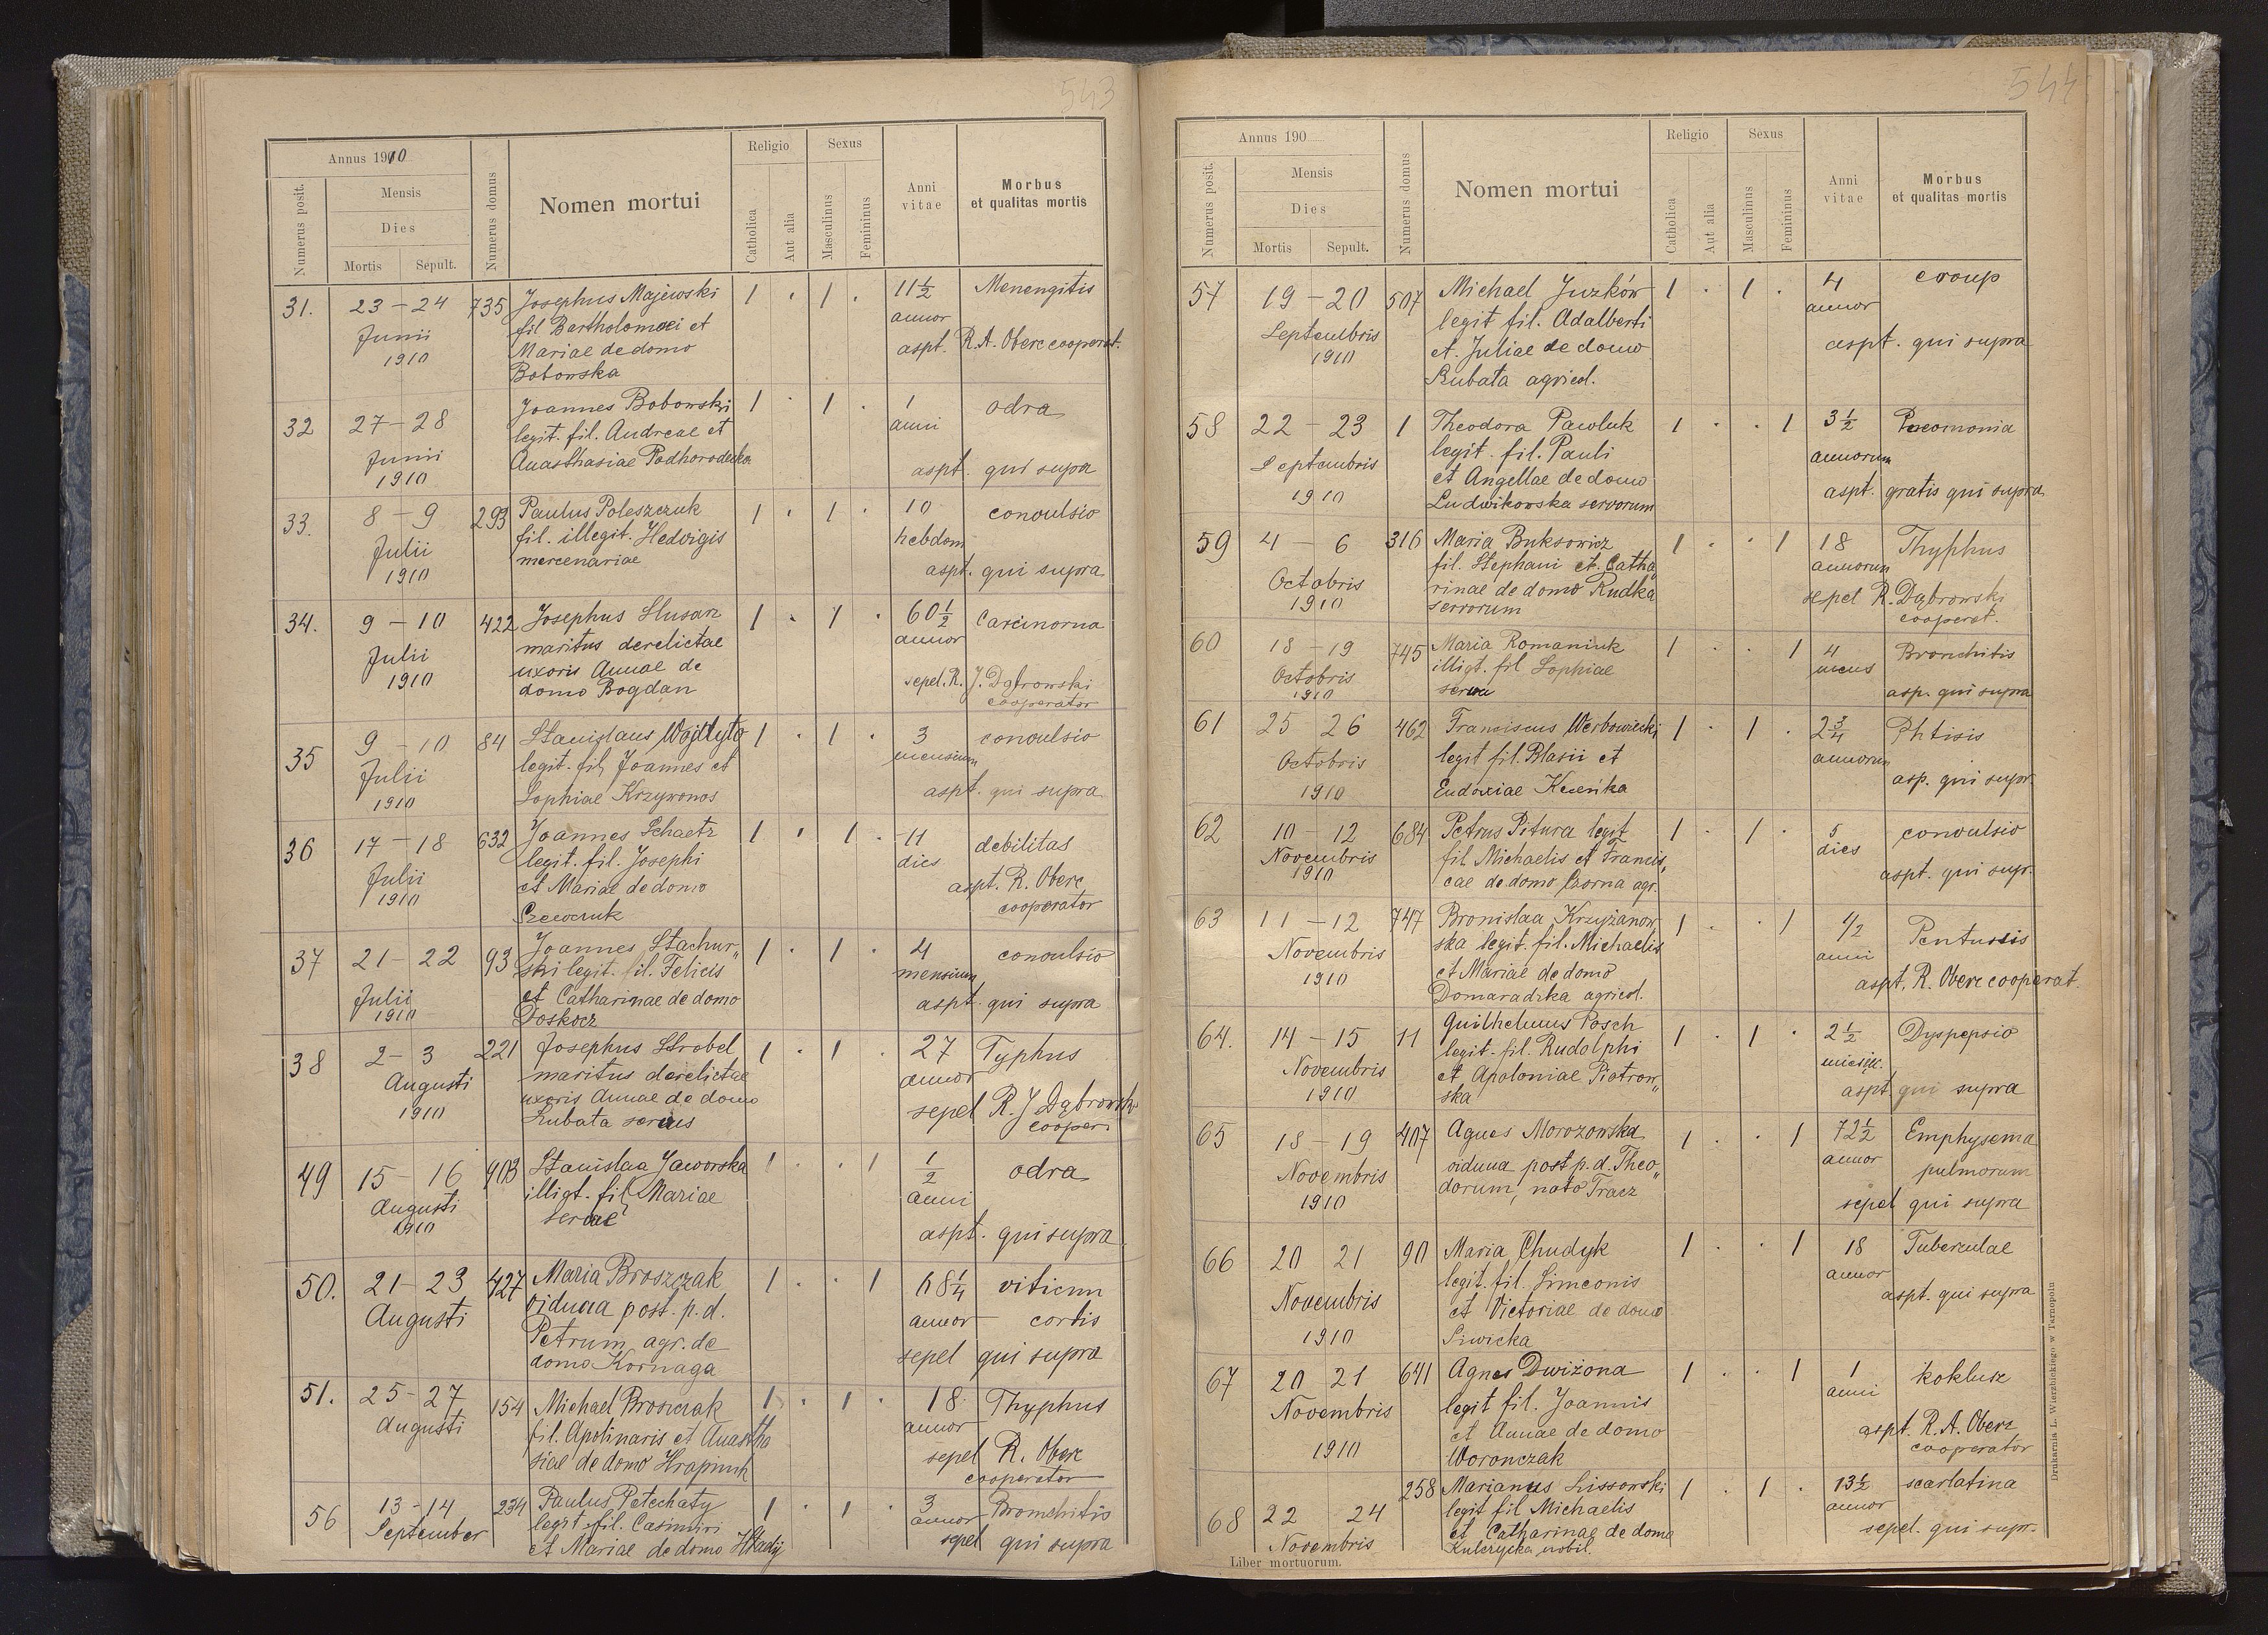 543
Annus 1910
Numerus posit.
Mensis
Dies
Mortis
Sepult.
Numerus domus
Nomen mortui
Religio
Catholica
Aut alia
Sexus
Masculinus
Femininus
Anni
vitae
Morbus
et qualitas mortis
31. 23 – 24 735 Josephus Majewski 1 . 1 . 11½ Menengitis
Junii fil Bartholomaei et annor
1910 Mariae de domo aspt. R. A. Oberc cooperat.
Bobowska
32 27 – 28 Joannes Bobowski 1 . 1 . 1 odra
Junii legit. fil. Andreae et anni
1910 Anasthasiae Podhorodecka aspt. qui supra
33. 8 – 9 293 Paulus Poleszczuk 1 . 1 . 10 convulsio
Julii fil. illegit. Hedvigis hebdom
1910 mercenariae aspt. qui supra
34. 9 – 10 422 Josephus Slusarz 1 . 1 . 60½ Carcinorna
Julii maritus derelictae annor
1910 uxoris Annae de sepel. R. J. Dąbrowski
domo Bogdan cooperator
35 9 – 10 84 Stanislaus Wojtyto 1 . 1 . 3 convulsio
Julii legit. fil. Joannes et mensium
1910 Sophiae Krzywonos aspt. qui supra
36 17 – 18 632 Joannes Schaetz 1 . 1 . 11 debilitas
Julii legit. fil. Josephi dies
1910 et Mariae de domo aspt. R. Oberc
Szewczuk cooperator
37 21 – 22 93 Joannes Stachur„ 1 . 1 . 4 convulsio
Julii ski legit. fil. Felicis mensium
1910 et Catharinae de domo aspt. qui supra
Doskocz
38 2 – 3 221 Josephus Strobel 1 . 1 . 27 Typhus
Augusti maritus derelictae annor
1910 uxoris Annae de domo sepel R. J Dąbrowski
Kubata servus cooper.
49 15 – 16 403 Stanislaa Jaworska 1 . . 1 ½ odra
Augusti illigt. fil. Mariae anni
1910 servae aspt. qui supra
50. 21 – 23 427 Maria Broszczak 1 . . 1 68¼ viticun
Augusti vidua post. p. d. annor cortis
Petrum agr. de sepel qui supra
domo Kornaga
51. 25 – 27 154 Michael Broszczak 1 . 1 . 18 Thyphus
Augusti fil. Apolinaris et Anastha annor
siae de domo Hrapiuk sepel R. Oberc
cooperator
56 13 – 14 234 Paulus Petechaty 1 . 1 . 3 Bronchitis
September legit. fil. Casimiri annor
et Mariae de domo Hładij sepel qui supra
544
Annus 190
Numerus posit.
Mensis
Dies
Mortis
Sepult.
Numerus domus
Nomen mortui
Religio
Catholica
Aut alia
Sexus
Masculinus
Femininus
Anni
vitae
Morbus
et qualitas mortis
57 19 – 20 507 Michael Juzków 1 . 1 . 4 croup
Septembris legit fil. Adalberti annor
1910 et. Juliae de domo aspt. qui supra
Kubata agricol.
58 22 – 23 1 Theodora Pawluk 1 . . 1 3½ Pneomonia
Septembris legit. fil. Pauli annorum
1910 et Angellae de domo aspt. gratis qui supra
Ludwikowska servorum
59 4 – 6 316 Maria Buksowicz 1 . . 1 18 Thyphus
Octobris fil. Stephani et. Catha„ annorum
1910 rinae de domo Rudka sepel R. Dąbrowski
servorum cooperat.
60 18 – 19 745 Maria Romaniuk 1 . . 1 4 Bronchitis
Octobris illigt. fil Sophiae mens
1910 serva asp. qui supra
61 25 – 26 462 Franciscus Werbowiecki 1 . 1 . 2¾ Phtisis
Octobris legit fil. Blasii et annorum
1910 Eudoxiae asp. qui supr.
62 10 – 12 684 Petrus Pitura legit 1 . 1 . 5 convulsio
Novembris fil Michaelis et Francis„ dies
1910 cae de domo Czorna agr. aspt. qui supr.
63 11 – 12 747 Bronislaa Krzyżanow 1 . . 1 1/2 Pentussis
Novembris ska legit. fil. Michaelis anni
1910 et Mariae de domo aspt. R. Oberc cooperat.
Domaradzka agricol.
64. 14 – 15 11 Guilhelmus Posch 1 . 1 . 2½ Dyspepsio
Novembris legit. fil. Rudolphi miesięc.
1910 et Apoloniae Piotrow„ aspt qui supra
ska
65 18 – 19 407 Agnes Morozowska 1 . . 1 72½ Emphysema
Novembris vidua post p. d. Theo„ annor pulmorum
1910 dorum, nata Tracz sepel qui supra
66 20 21 90 Maria Chudyk 1 . . 1 18 Tuberculae
Novembris legit. fil. Simeonis annor
1910 et Victoriae de domo aspt. qui supra
Siwicka
67 20 21 641 Agnes Dwiżona 1 . . 1 1 koklusz
Novembris legit fil. Joannis anni
1910 et Annae de domo aspt. R. A. Oberc
Woronczak cooperator
68 22 24 258 Marianus Lissowski 1 . 1 . 13½ scarlatina
Novembris legit fil Michaelis annor
et Catharinae de domo sepel. qui supr.
Kulczycka nobil.
Liber mortuorum.
Drukarnia L. Wierzbickiego w Tarnopolu